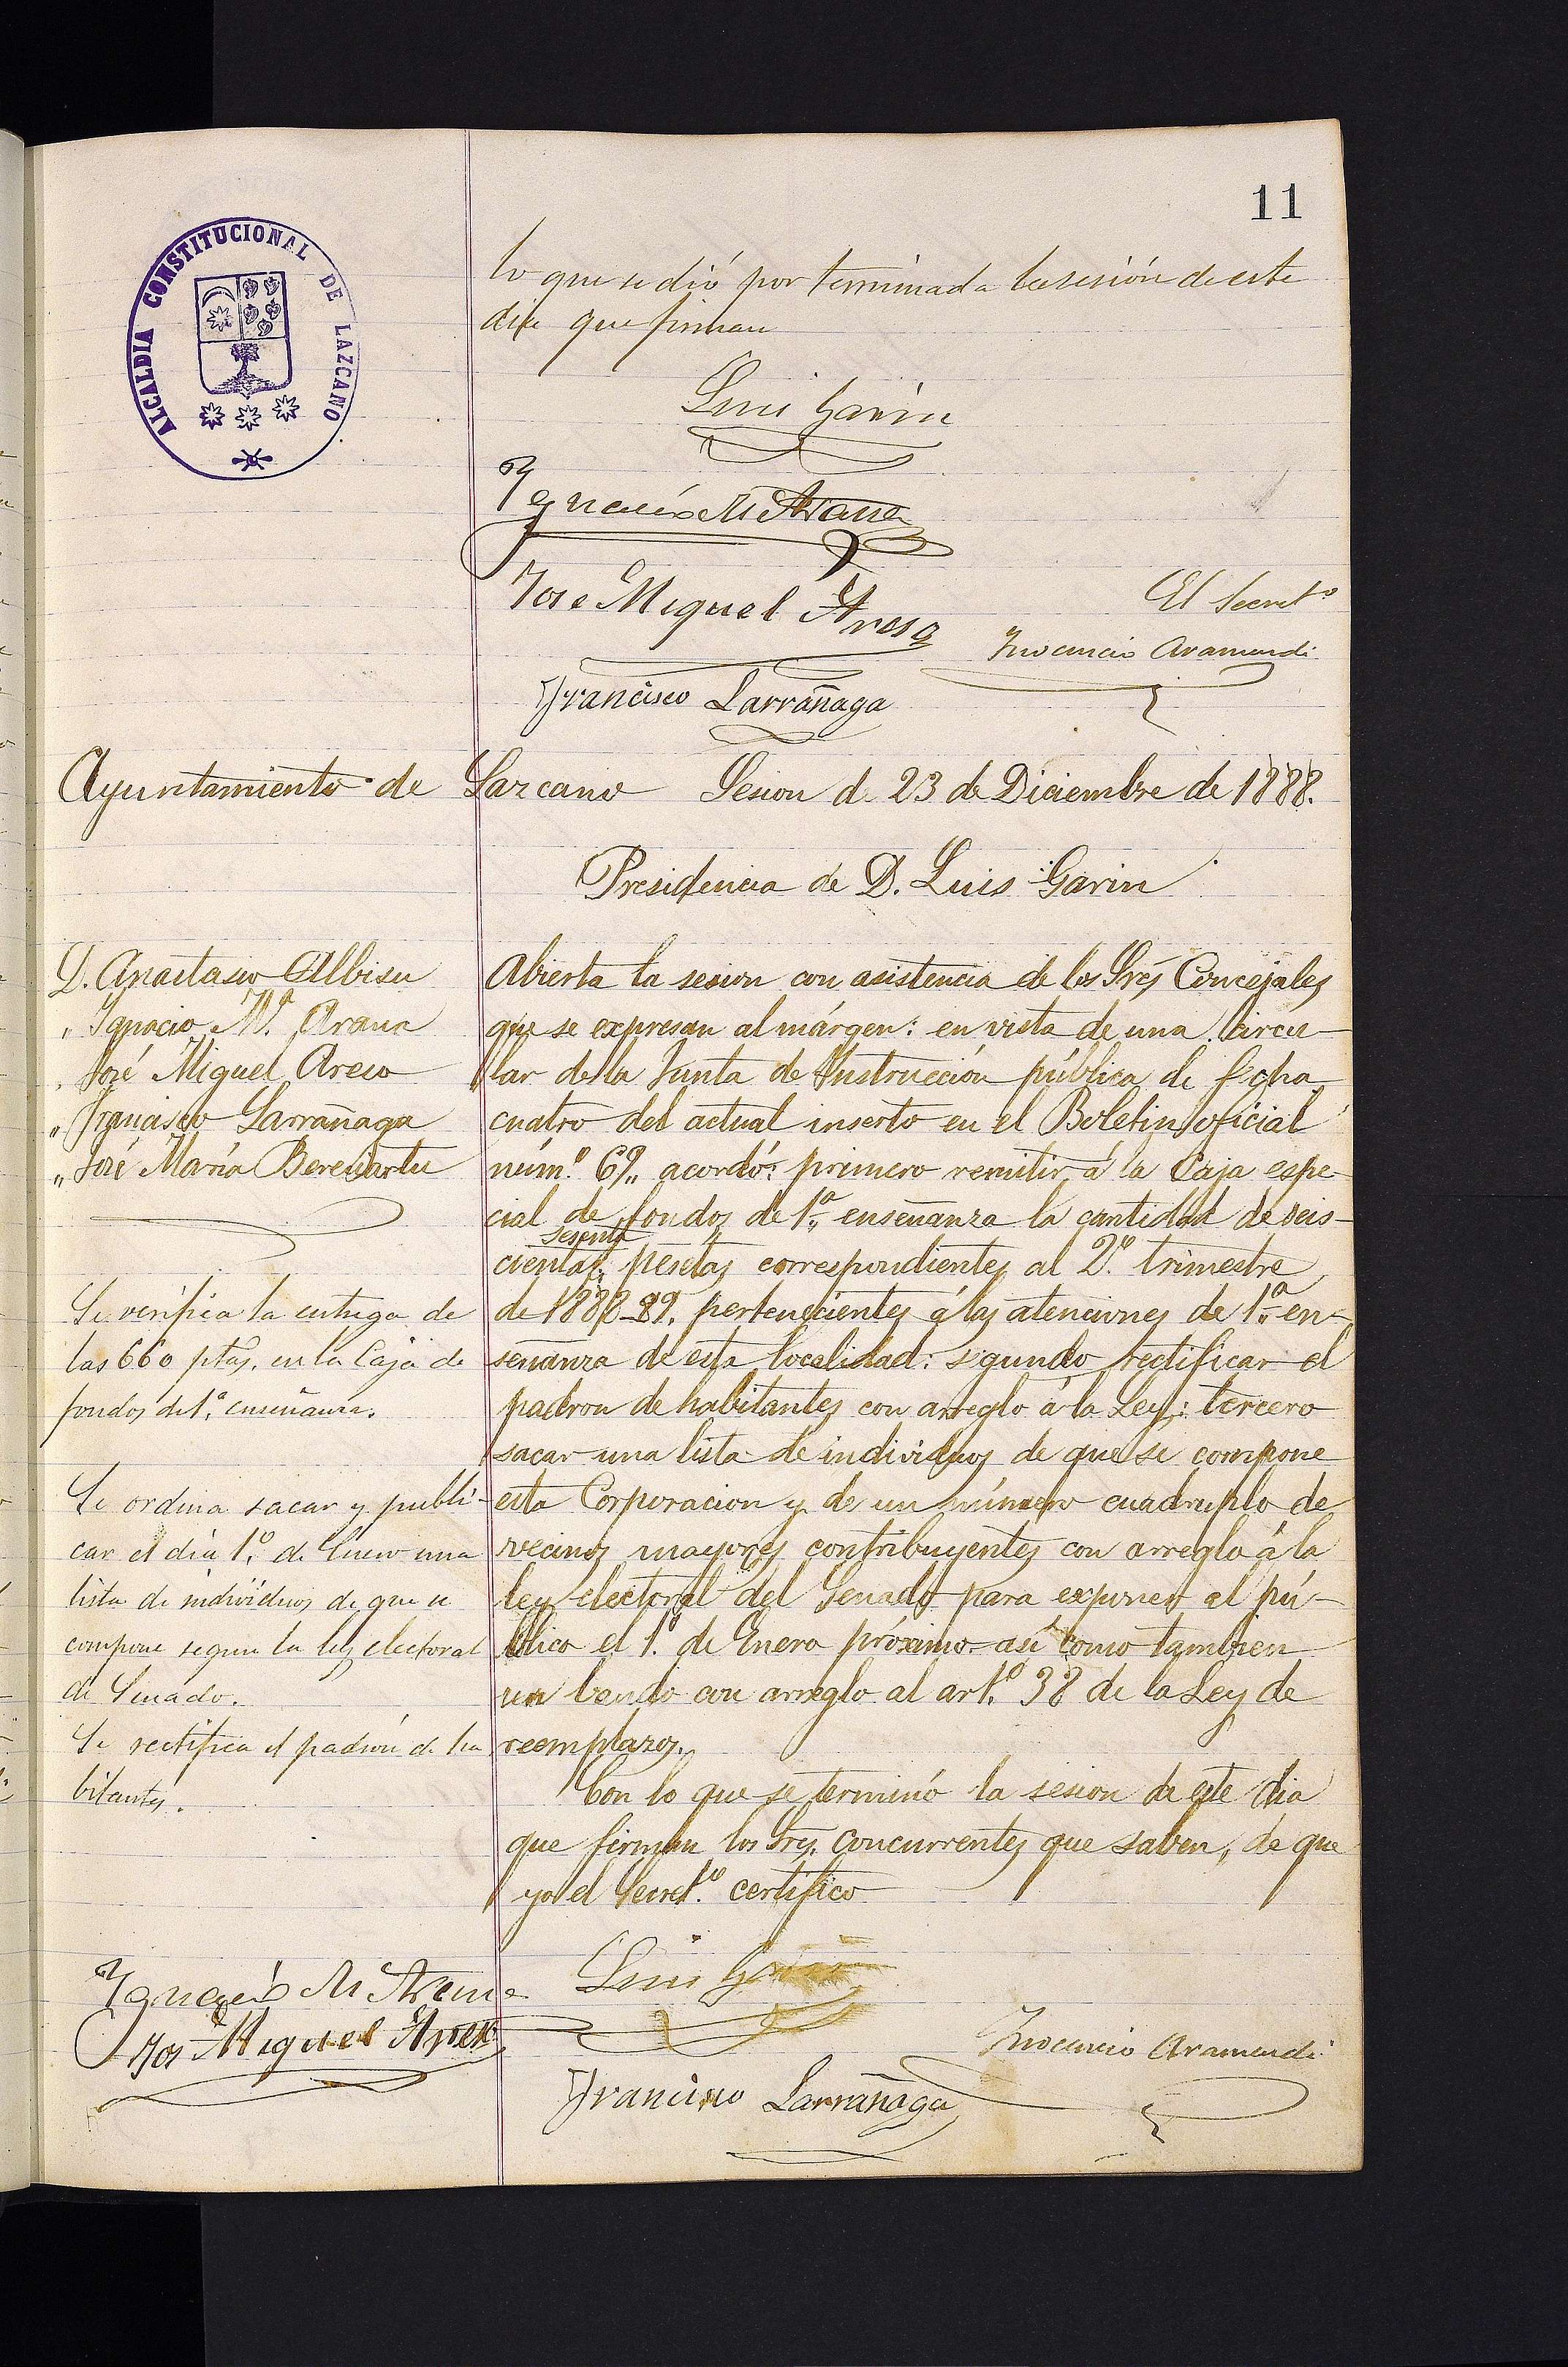 11
ALCALDIA CONSTITUCIONAL DE LAZCANO
lo que se dió por terminada la sesión de este
dia que firman
Luis Garin
Ygnacio M Arana
Jose Miguel Areso
El Secret.º
Inocencio Aramendi
Francisco Larrañaga
Ayuntamiento de Lazcano Sesion de 23 de Diciembre de 1888.
Presidencia de D. Luis Garin
D. Anastasio Albisu
" Ignacio M.ª Arana
" José Miguel Areso
" Francisco Larrañaga
" José María Berecuartu
Se verifica la entrega de
las 660 ptas. en la Caja de
fondos de 1.ª enseñanza.
Se ordena sacar y publi-
car el día 1.º de Enero una
lista de individuos de que se
compone segun la ley electoral
de Senado.
Se rectifica el padrón de ha
bitantes.
Abierta la sesion con asistencia de los Sres Concejales
que se expresan al márgen: en vista de una Circu-
lar de la Junta de Instrucción pública de fecha
cuatro del actual inserto en el Boletin oficial
núm.º 69, acordó: primero remitir á la Caja espe-
cial de fondos de 1.ª enseñanza la cantidad de seis-
sesenta
cientas pesetas correspondientes al 2.º trimestre
de 1888-89, pertenecientes á las atenciones de 1.ª en-
señanza de esta localidad: segundo rectificar el
padron de habitantes con arreglo á la Ley: tercero
sacar una lista de individuos de que se compone
esta Corporacion y de un número cuadruplo de
vecinos mayores contribuyentes con arreglo á la
ley electoral del Senado para exponer al pú-
blico el 1.º de Enero próximo así como tambien
un bando con arreglo al art.º 38 de la Ley de
reemplazos.
Con lo que se terminó la sesion de este dia
que firman los Sres. concurrentes que saben, de que
yo el Secret.º certifico
Ygnacio M Arana
Jos Miguel Areso
Luis Garin
Inocencio Aramendi
Francisco Larrañaga